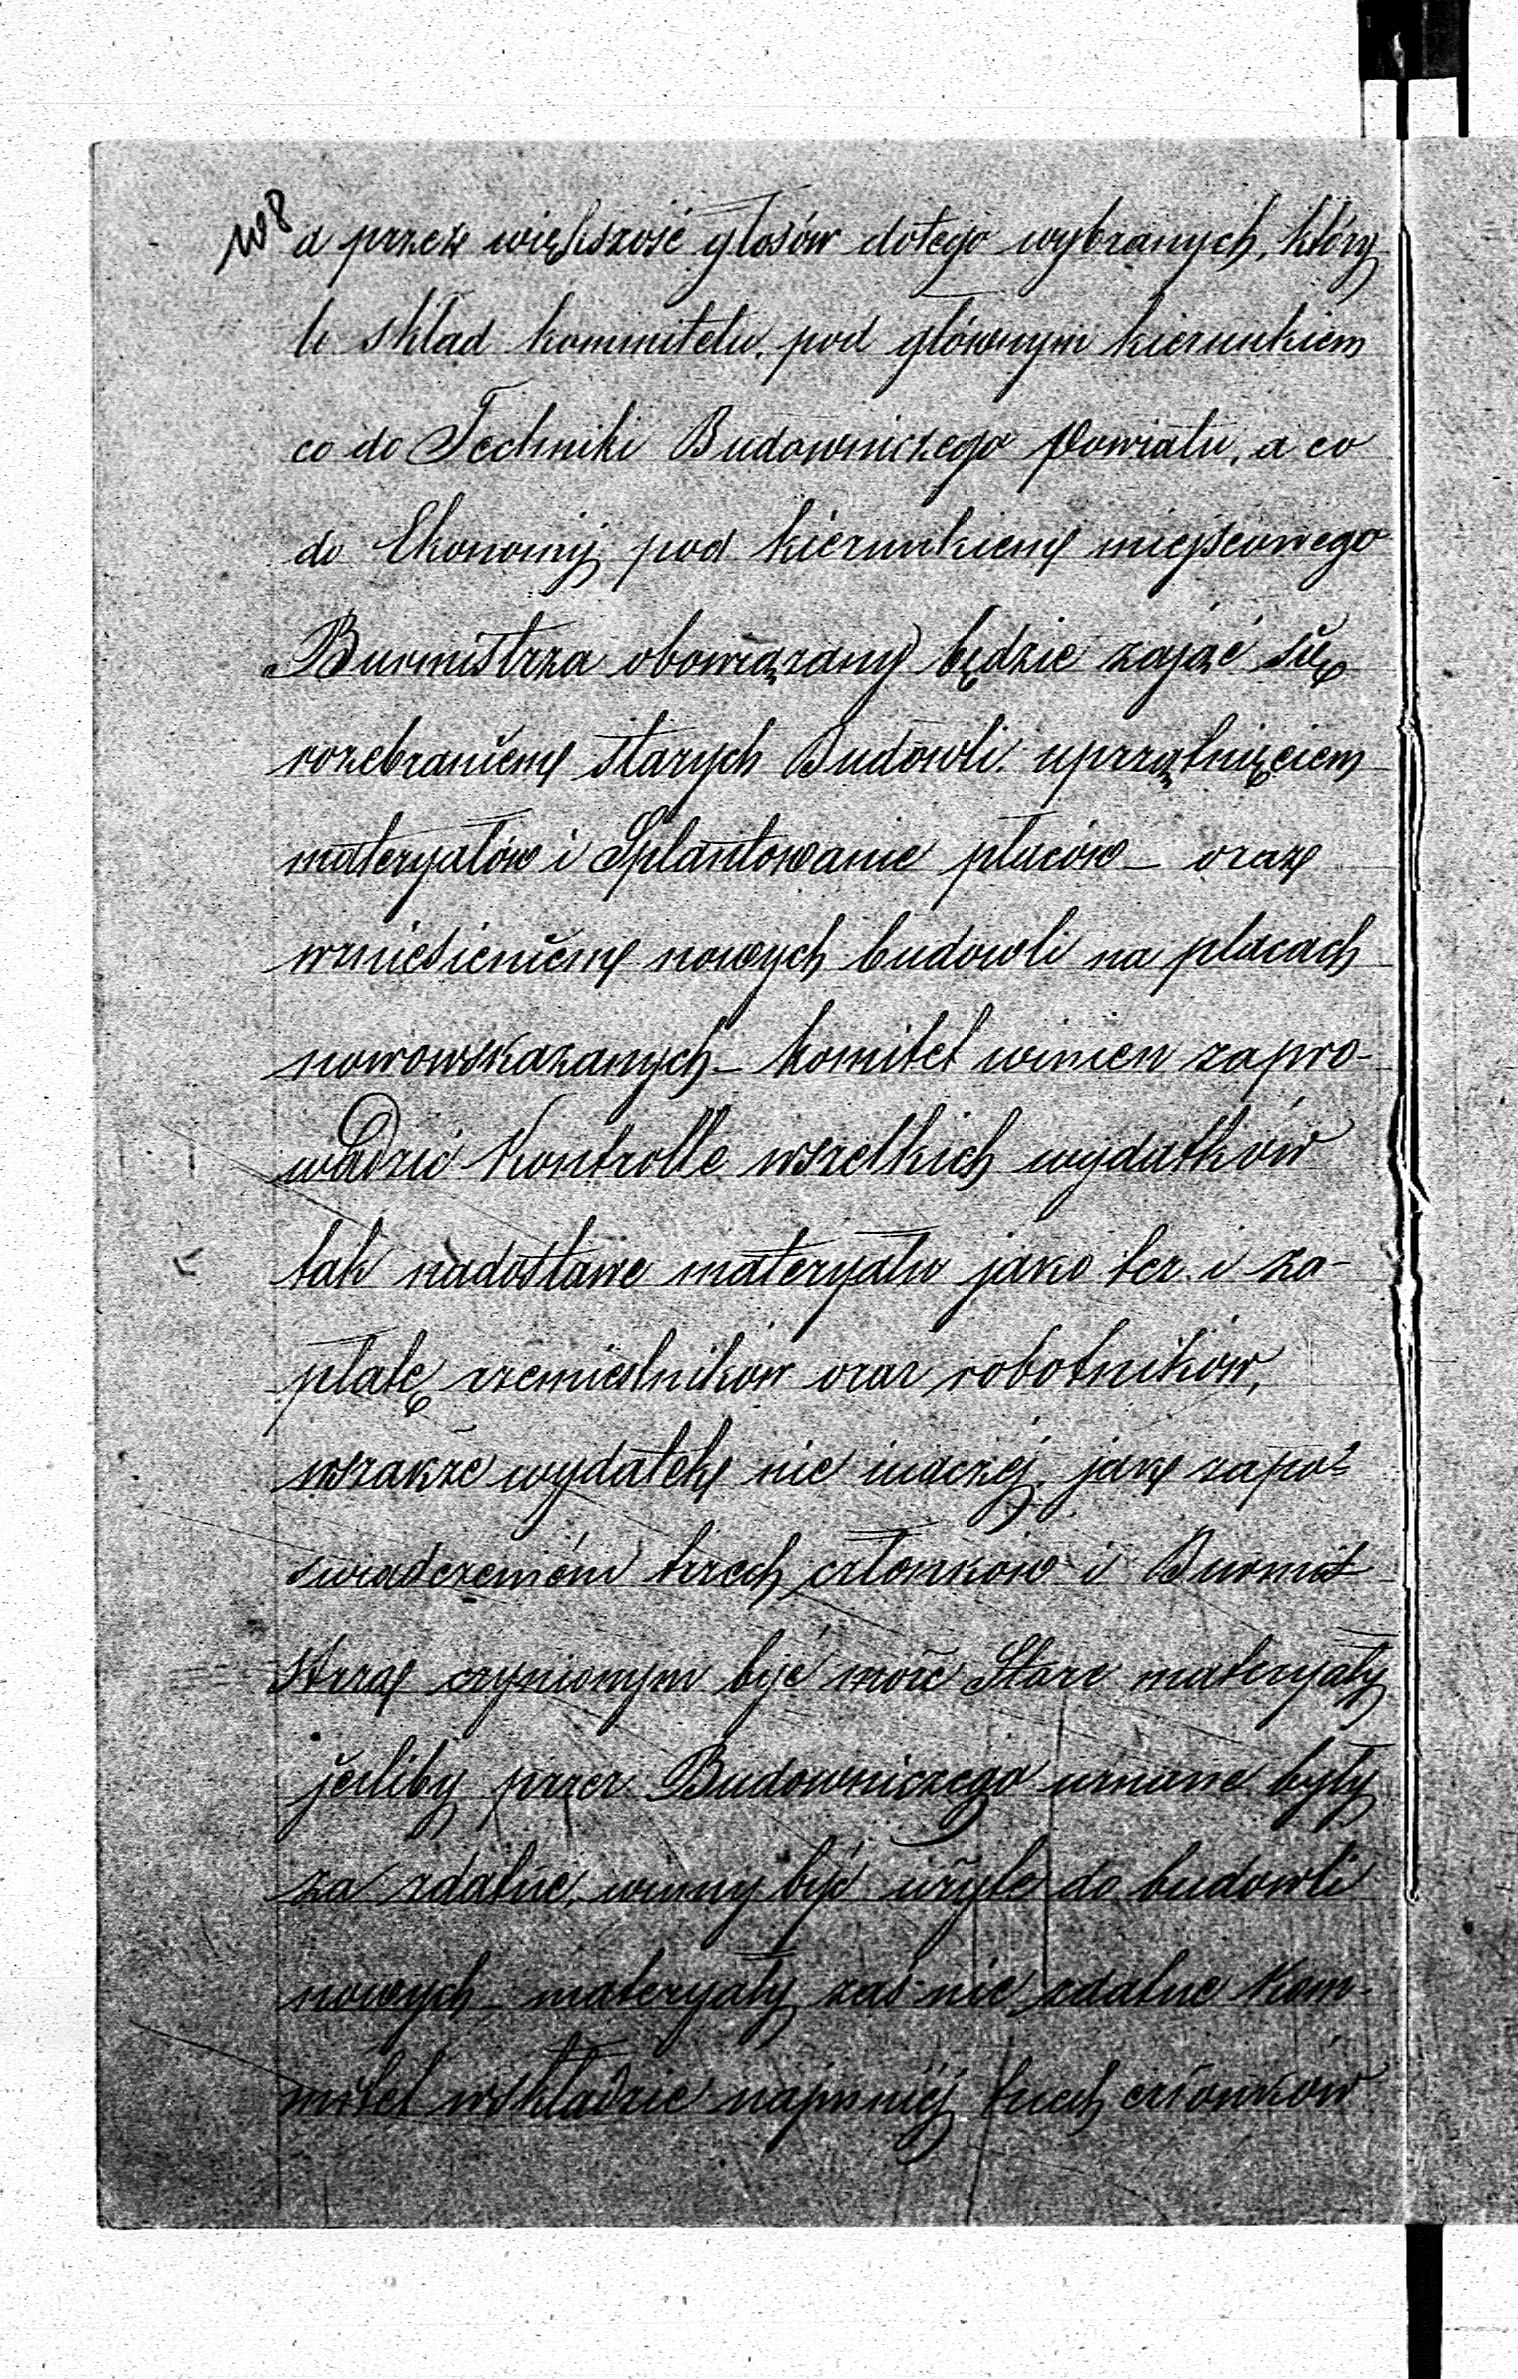 108
a przez większość głosów dotego wybranych, który
to skład kommitetu, pod głównym kierunkiem
co do Techniki Budowniczego Powiatu, a co
do Ekonomij pod kierunkiem miejscowego
Burmistrza obowiązany będzie zająć się
rozebraniem starych Budowli uprzątnięciem
materyałów i Splantowanie placów – oraz
wzniesieniem nowych budowli na placach
nowowskazanych – komitet winien zapro-
wadzić Kontrolle wszelkich wydatków
tak nadostawe materyału jako tez i za-
płatę rzemieślników oraz robotników,
wszakże wydatek nie inaczej jak zapo-
swiadczeniem trzech członków i Burmis
strza czynionym być może Stare materyały
jeśliby przez Budowniczego uznane były
za zdatne, winny być użyte do budowli
nowych – materyały zaś nie zdatne Kom-
mitet wskładzie najmniej trzech członków